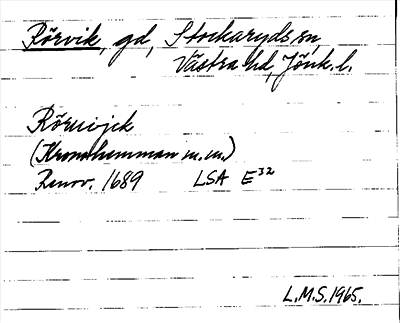 Rörvik, gd, Stockaryds sn,
Västra hd, Jönk. l.
Rörwijck
(Kronohemman m.m.)
Renov. 1689 LSA E32
L.M.S. 1965.